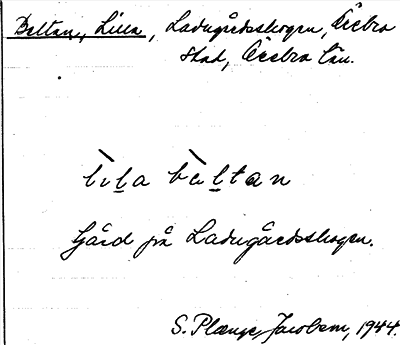 Beltan, Lilla, Ladugårdsskogen, Örebro
stad, Örebro län.
lìl̲a bèl̲tan
Gård på Ladugårdsskogen.
S. Plænge Jacobson, 1944.